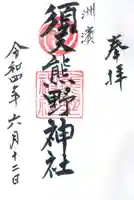 奉拝
洲濱
須久熊野神社
令和四年六月十二日